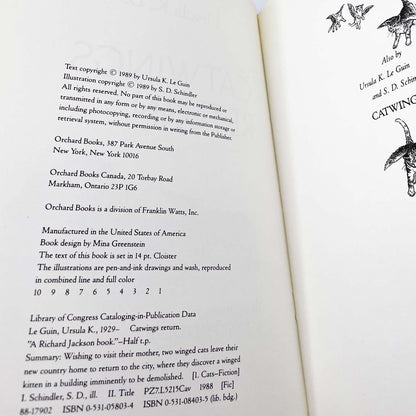 Text copyright © 1989 by Ursula K. Le Guin
Illustration copyright © 1989 by S. D. Schindler
All rights reserved. No part of this book may be reproduced or
transmitted in any form or by any means, electronic or mechanical,
including photocopying, recording or by any information storage or
retrieval system, without permission in writing from the Publisher.
Orchard Books, 387 Park Avenue South
New York, New York 10016
Orchard Books Canada, 20 Torbay Road
Markham, Ontario 23P 1G6
Orchard Books is a division of Franklin Watts, Inc.
Manufactured in the United States of America
Book design by Mina Greenstein
The text of this book is set in 14 pt. Cloister
The illustrations are pen-and-ink drawings and wash, reproduced
in combined line and full color
10 9 8 7 6 5 4 3 2 1
Library of Congress Cataloging-in-Publication Data
Le Guin, Ursula K., 1929– Catwings return.
"A Richard Jackson book."—Half t.p.
Summary: Wishing to visit their mother, two winged cats leave their
new country home to return to the city, where they discover a winged
kitten in a building imminently to be demolished. [1. Cats–Fiction]
I. Schindler, S. D., ill. II. Title PZ7.L5215Cav 1988 [Fic]
88-17902 ISBN 0-531-05803-4 ISBN 0-531-08403-5 (lib. bdg.)
Also by
Ursula K. Le Guin
and S. D. Schind
CATWING